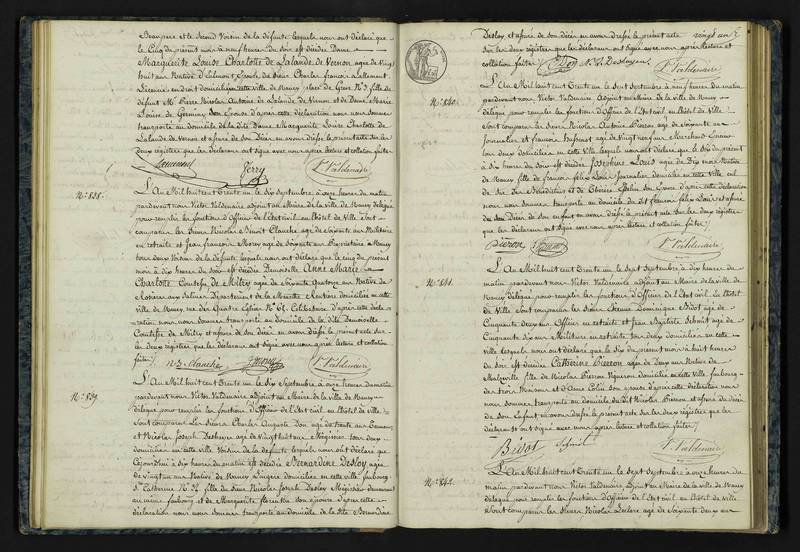 Beaupere et le second Voisin de la défunte lesquels nous ont déclaré que
le Cinq du présent mois à neuf heures du soir est décédée Dame
Marguerite Louise Charlotte de Lalande de Vernon agée de Vingt
huit ans Native de Epouse du Sieur Charles François Lallement
en droit domiciliée en cette ville de Nancy place de Greve N° 3 fille de
défunt Mr Pierre Nicolas Antoine de Lalande de Vernon et de Dame Marie
Louise de Germiny son Epouse d'après cette déclaration nous nous sommes
transporté au domicile de la dite Dame Marguerite Louise Charlotte de
Lalande de Vernon et assuré de son décès en avons dressé le présent acte sur les
deux registres que les déclarants ont signé avec nous après lecture et collation faites
Ferry Vr Valdenaire
N° 838.
L'An Mil huit cent Trente un le Six Septembre à onze heures du matin
pardevant nous Victor Valdenaire adjoint au Maire de la ville de Nancy délégué
pour remplir les fonctions d'Officier de l'Etat civil en l'hôtel de Ville sont
comparus les Sieurs Nicolas Benoit Elanche agé de Soixante ans Militaire
en retraite et Jean François Morey agé de Soixante ans Propriétaire à Nancy
tous deux Voisins de la défunte lesquels nous ont déclaré que le cinq du présent
mois à dix heures du soir est décédée Demoiselle Anne Marie
Charlotte Comtesse de Mitry agée de Soixante Quatorze ans Native de
Rosières aux Salines Département de la Meurthe Rentière domiciliée en cette
ville de Nancy rue des Quatre Eglises N° 61. Célibataire d'après cette décla-
ration nous nous sommes transporté au domicile de la dite Demoiselle
Comtesse de Mitry et assuré de son décès en avons dressé le présent acte sur
les deux registres que les déclarants ont signé avec nous après lecture et collation
faites
Vr Valdenaire
N° 839.
L'An Mil huit cent Trente un le Six Septembre à onze heures du matin
pardevant nous Victor Valdenaire adjoint au Maire de la ville de Nancy
délégué pour remplir les fonctions d'Officier de l'Etat civil en l'hôtel de ville
sont comparus les Sieurs Charles Auguste Don agé de trente ans
et Nicolas Joseph Desloy agé de Vingt huit ans Mégissier tous deux
domiciliés en cette ville Voisins de la défunte lesquels nous ont déclaré que
Cejourd'hui à dix heures du matin est décédée Bernardine Desloy agée
de Vingt un ans Native de Nancy Lingère domiciliée en cette ville faubourg
Ste Catherine N° fille du Sieur Nicolas Joseph Desloy Mégissier demeurant
au même faubourg et de Marguerite Florentin son épouse d'après cette
déclaration nous nous sommes transporté au domicile de la dite Bernardine
Desloy et assuré de son décès en avons dressé le présent acte
sur les deux registres que les déclarants ont signé avec nous après lecture et
collation faites Don Vr Valdenaire
N° 840.
L'An Mil huit cent Trente un le Sept Septembre à neuf heures du matin
pardevant nous Victor Valdenaire Adjoint au Maire de la ville de Nancy
délégué pour remplir les fonctions d'Officier de l'Etat civil en l'hôtel de Ville
Sont comparus les Sieurs Nicolas Antoine Pierron agé de Soixante ans
Journalier et François agé de Vingt neuf ans Marchand
tous deux domiciliés en cette Ville lesquels nous ont déclaré que le Six du présent
à Six heures du soir est décédé Josephine Louis agée de Dix mois Native
de Nancy, fille de François Félix Louis Journalier domicilié en cette Ville
d'après cette déclaration
nous nous sommes transporté au domicile du dit François Félix Louis et assuré
du Décès de son Enfant en avons dressé le présent acte sur les deux registres
que les déclarants ont signé avec nous après lecture et collation faites
Piéron Vr Valdenaire
N° 841.
L'An Mil huit cent Trente un le Sept Septembre à dix heures du
matin pardevant nous Victor Valdenaire adjoint au Maire de la ville de
Nancy délégué pour remplir les fonctions d'Officier de l'Etat civil en l'hôtel
de Ville sont comparus les Sieurs Dominique Bidot agé de
Cinquante deux ans Officier en retraite et Jean Baptiste Schmit agé de
Cinquante six ans Militaire en retraite tous deux domiciliés en cette
ville lesquels nous ont déclaré que le Six du présent mois à huit heures
du soir est décédée Catherine Pierron agée de Deux ans Native de
Malzéville fille de Nicolas Pierron Vigneron domicilié en cette Ville faubourg
des trois Maisons et d'Anne Colin son épouse d'après cette déclaration nous
nous sommes transporté au domicile du dit Nicolas Pierron et assuré du décès
de son Enfant en avons dressé le présent acte sur les deux registres que les
déclarants ont signé avec nous après lecture et collation faites
Bidot Schmit Vr Valdenaire
N° 842.
L'An Mil huit cent Trente un le Sept Septembre à onze heures du
matin pardevant nous Victor Valdenaire Adjoint au Maire de la ville de Nancy
délégué pour remplir les fonctions d'Officier de l'Etat civil en l'hôtel de Ville
sont comparus les Sieurs Nicolas Leclerc agé de Soixante deux ans